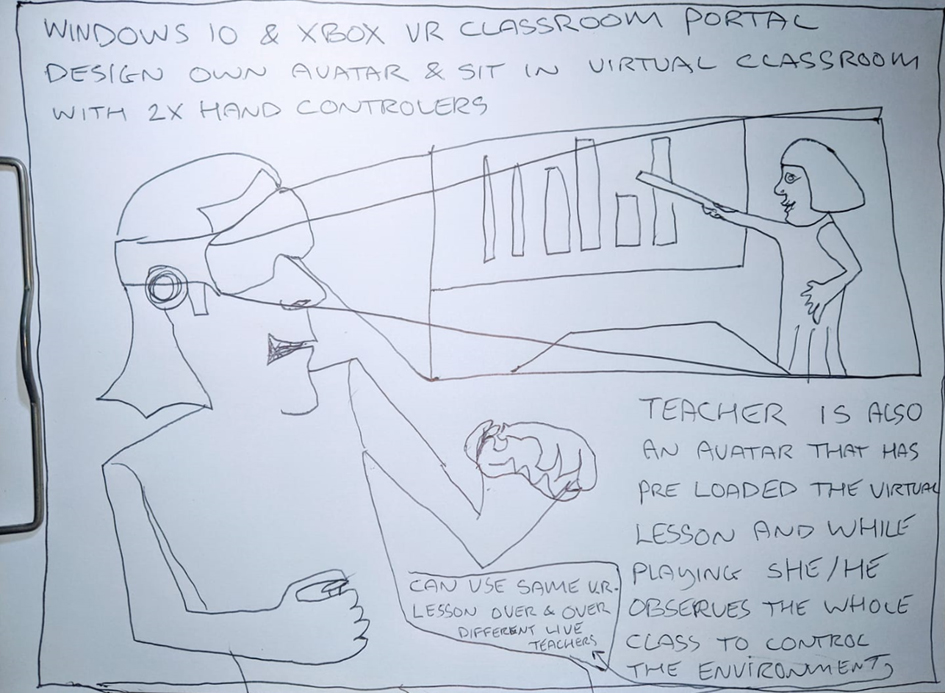 WINDOWS 10 & XBOX VR CLASSROOM PORTAL
DESIGN OWN AVATAR & SIT IN VIRTUAL CLASSROOM
WITH 2X HAND CONTROLERS
TEACHER IS ALSO
AN AVATAR THAT HAS
PRE LOADED THE VIRTUAL
LESSON AND WHILE
PLAYING SHE/HE
OBSERVES THE WHOLE
CLASS TO CONTROL
THE ENVIRONMENT
CAN USE SAME V.R.
LESSON OVER & OVER
DIFFERENT LIVE
TEACHERS